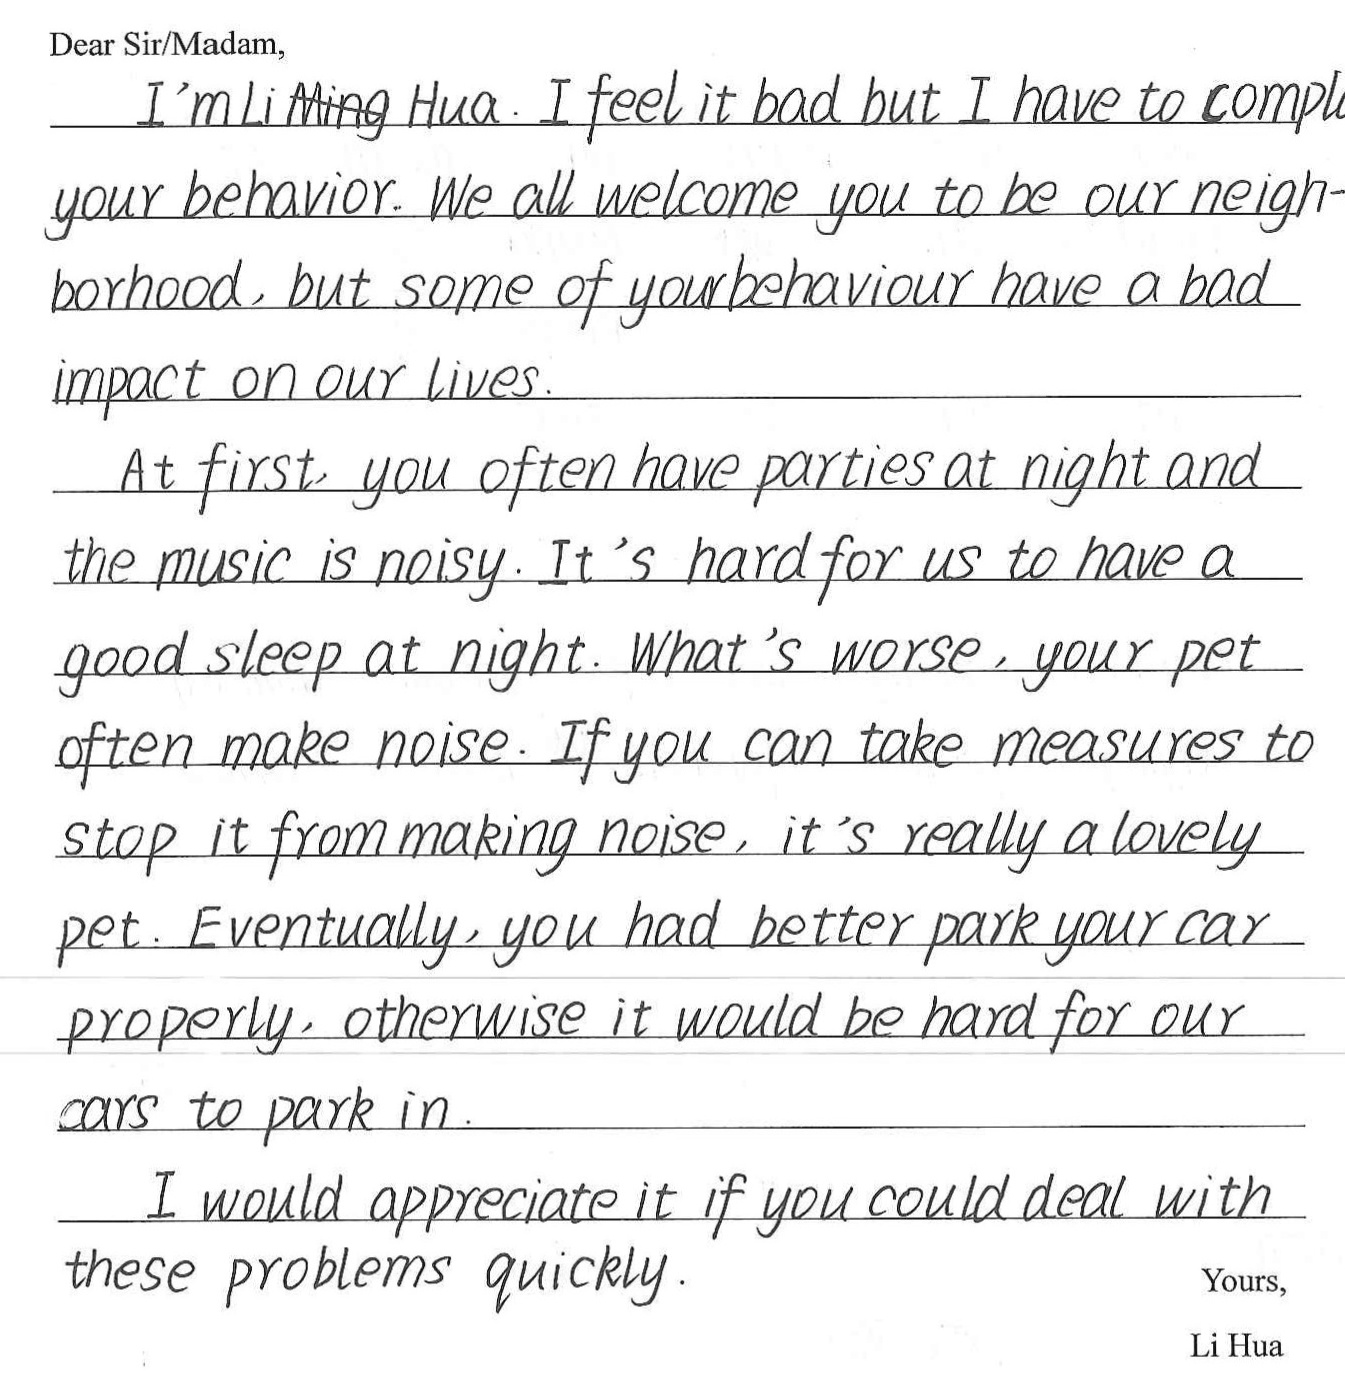 Dear Sir/Madam,
I'm Li Hua. I feel it bad but I have to
your behavior. We all welcome you to be our neigh-
borhood, but some of your behaviour have a bad
impact on our lives.
At first, you often have parties at night and
the music is noisy. It's hard for us to have a
good sleep at night. What's worse, your pet
often make noise. If you can take measures to
stop it from making noise, it's really a lovely
pet. Eventually, you had better park your car
properly, otherwise it would be hard for our
cars to park in.
I would appreciate it if you could deal with
these problems quickly.
Yours,
Li Hua